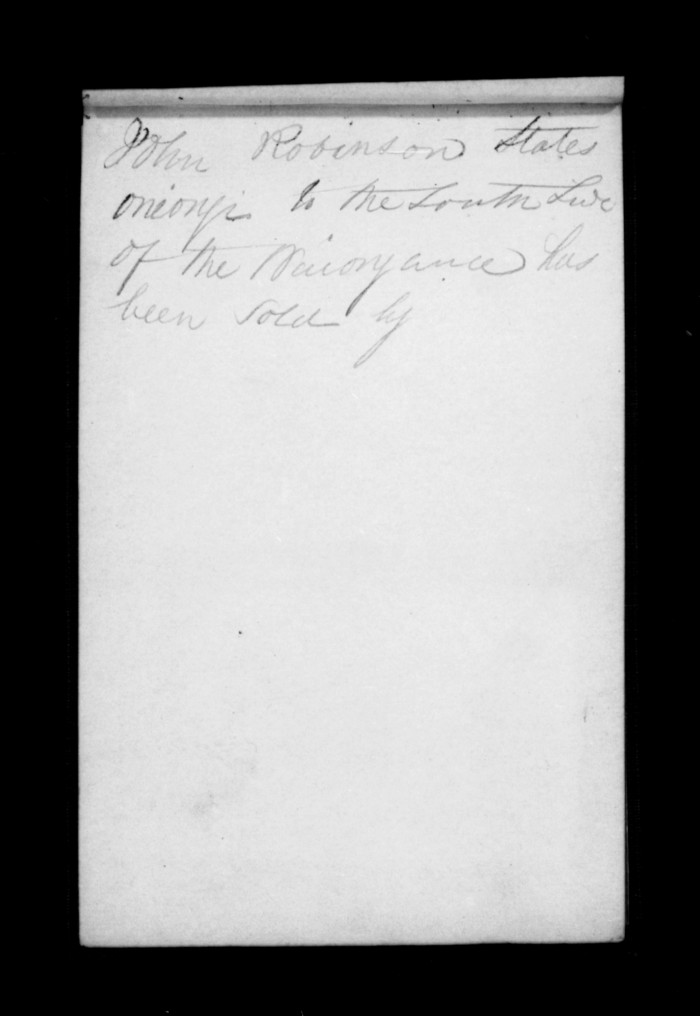 John Robinson States
to the South Side
of the has
been Sold by